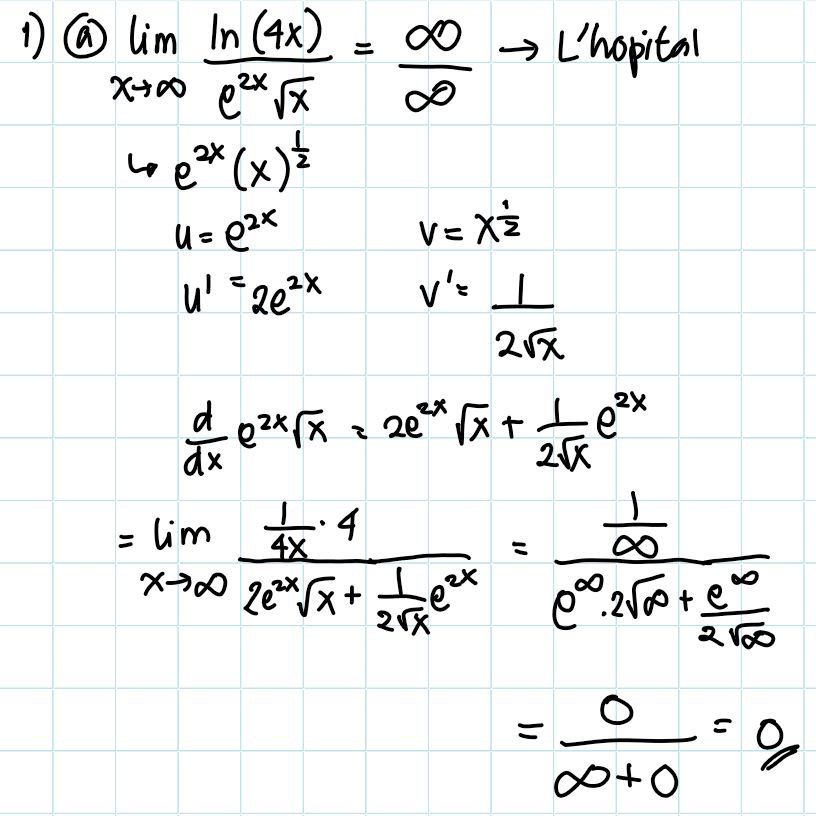 1) ⓐ lim x→∞ ln(4x) / e^{2x}√x = ∞/∞ → L'hopital
↳ e^{2x}(x)^{1/2}
u = e^{2x} v = x^{1/2}
u' = 2e^{2x} v' = 1/(2√x)
d/dx e^{2x}√x = 2e^{2x}√x + 1/(2√x) e^{2x}
= lim x→∞ (1/(4x) · 4) / (2e^{2x}√x + 1/(2√x) e^{2x}) = (1/∞) / (e^∞ · 2√∞ + e^∞/(2√∞))
= 0/(∞+0) = 0